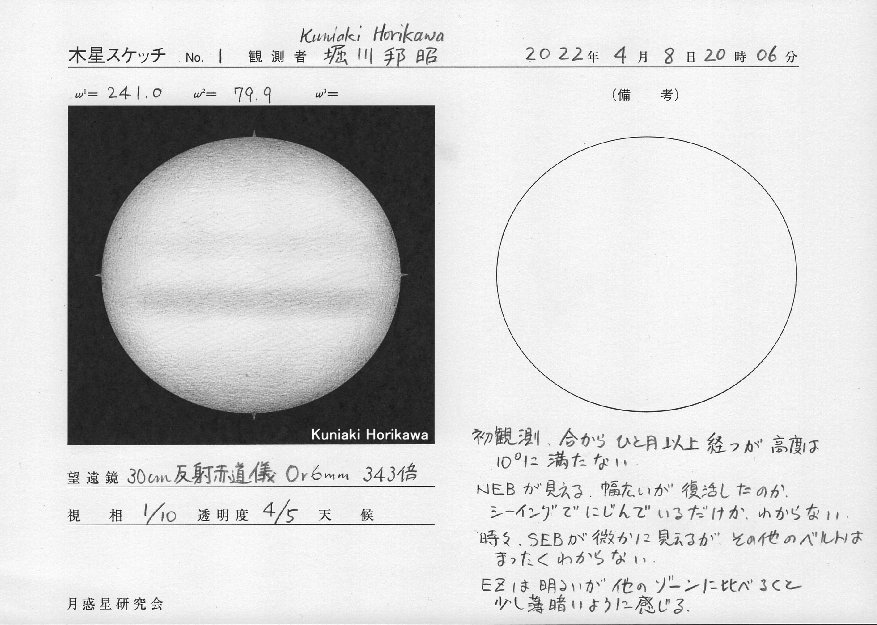 Kuniaki Horikawa
木星スケッチ No. 1 観測者 堀川邦昭 2022年 4月 8日 20時 06分
ω¹= 241.0 ω²= 79.9 ω³=
(備 考)
Kuniaki Horikawa
望遠鏡 30cm反射赤道儀 Or6mm 343倍
視 相 1/10 透明度 4/5 天 候
月惑星研究会
初観測、合からひと月以上経つが高度は
10°に満たない
NEBが見える、幅広いが復活したのか、
シーイングでにじんでいるだけか、わからない.
時々、SEBが微かに見えるが、その他のベルトは
まったくわからない.
EZは明るいが他のゾーンに比べると
少し薄暗いように感じる.